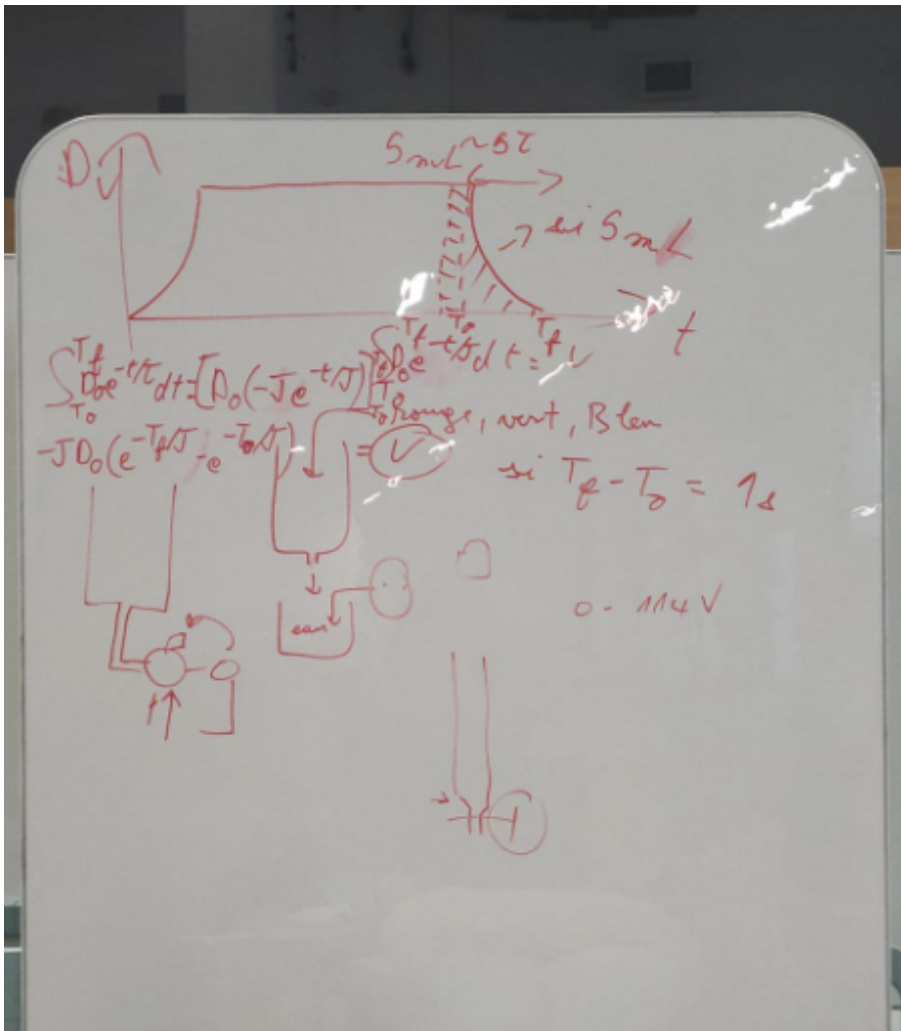 D
5 mL ~5τ
→ si 5 mL
T₀ T_f
t
∫_{T₀}^{T_f} D₀e^{-t/τ}dt = [D₀(-τe^{-t/τ})]_{T₀}^{T_f}
∫_{T₀}^{T_f} D₀e^{-t/τ}dt = V
-τD₀(e^{-T_f/τ} - e^{-T₀/τ}) = V
Rouge, vert, Bleu
si T_f - T₀ = 1s
eau